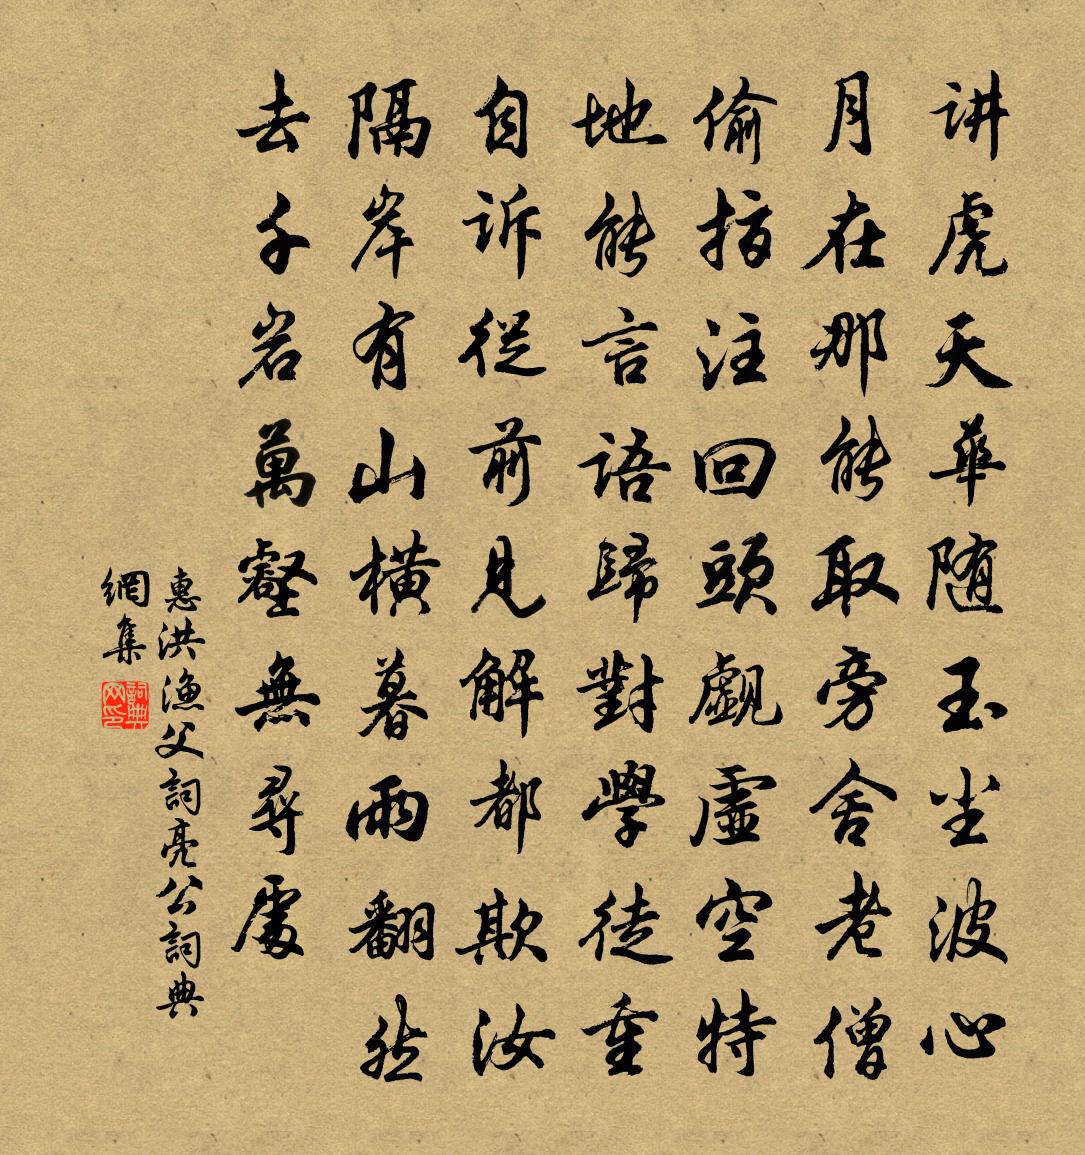 讲虎天華随玉尘波心
月在那能取旁舍老僧
偷指注回頭覷虛空特
地能言語歸對學徒重
自訴從前見解都欺汝
隔岸有山橫暮雨翻然
去千岩萬壑無尋處
惠洪漁父詞亮公詞典
網集
詞典
网印